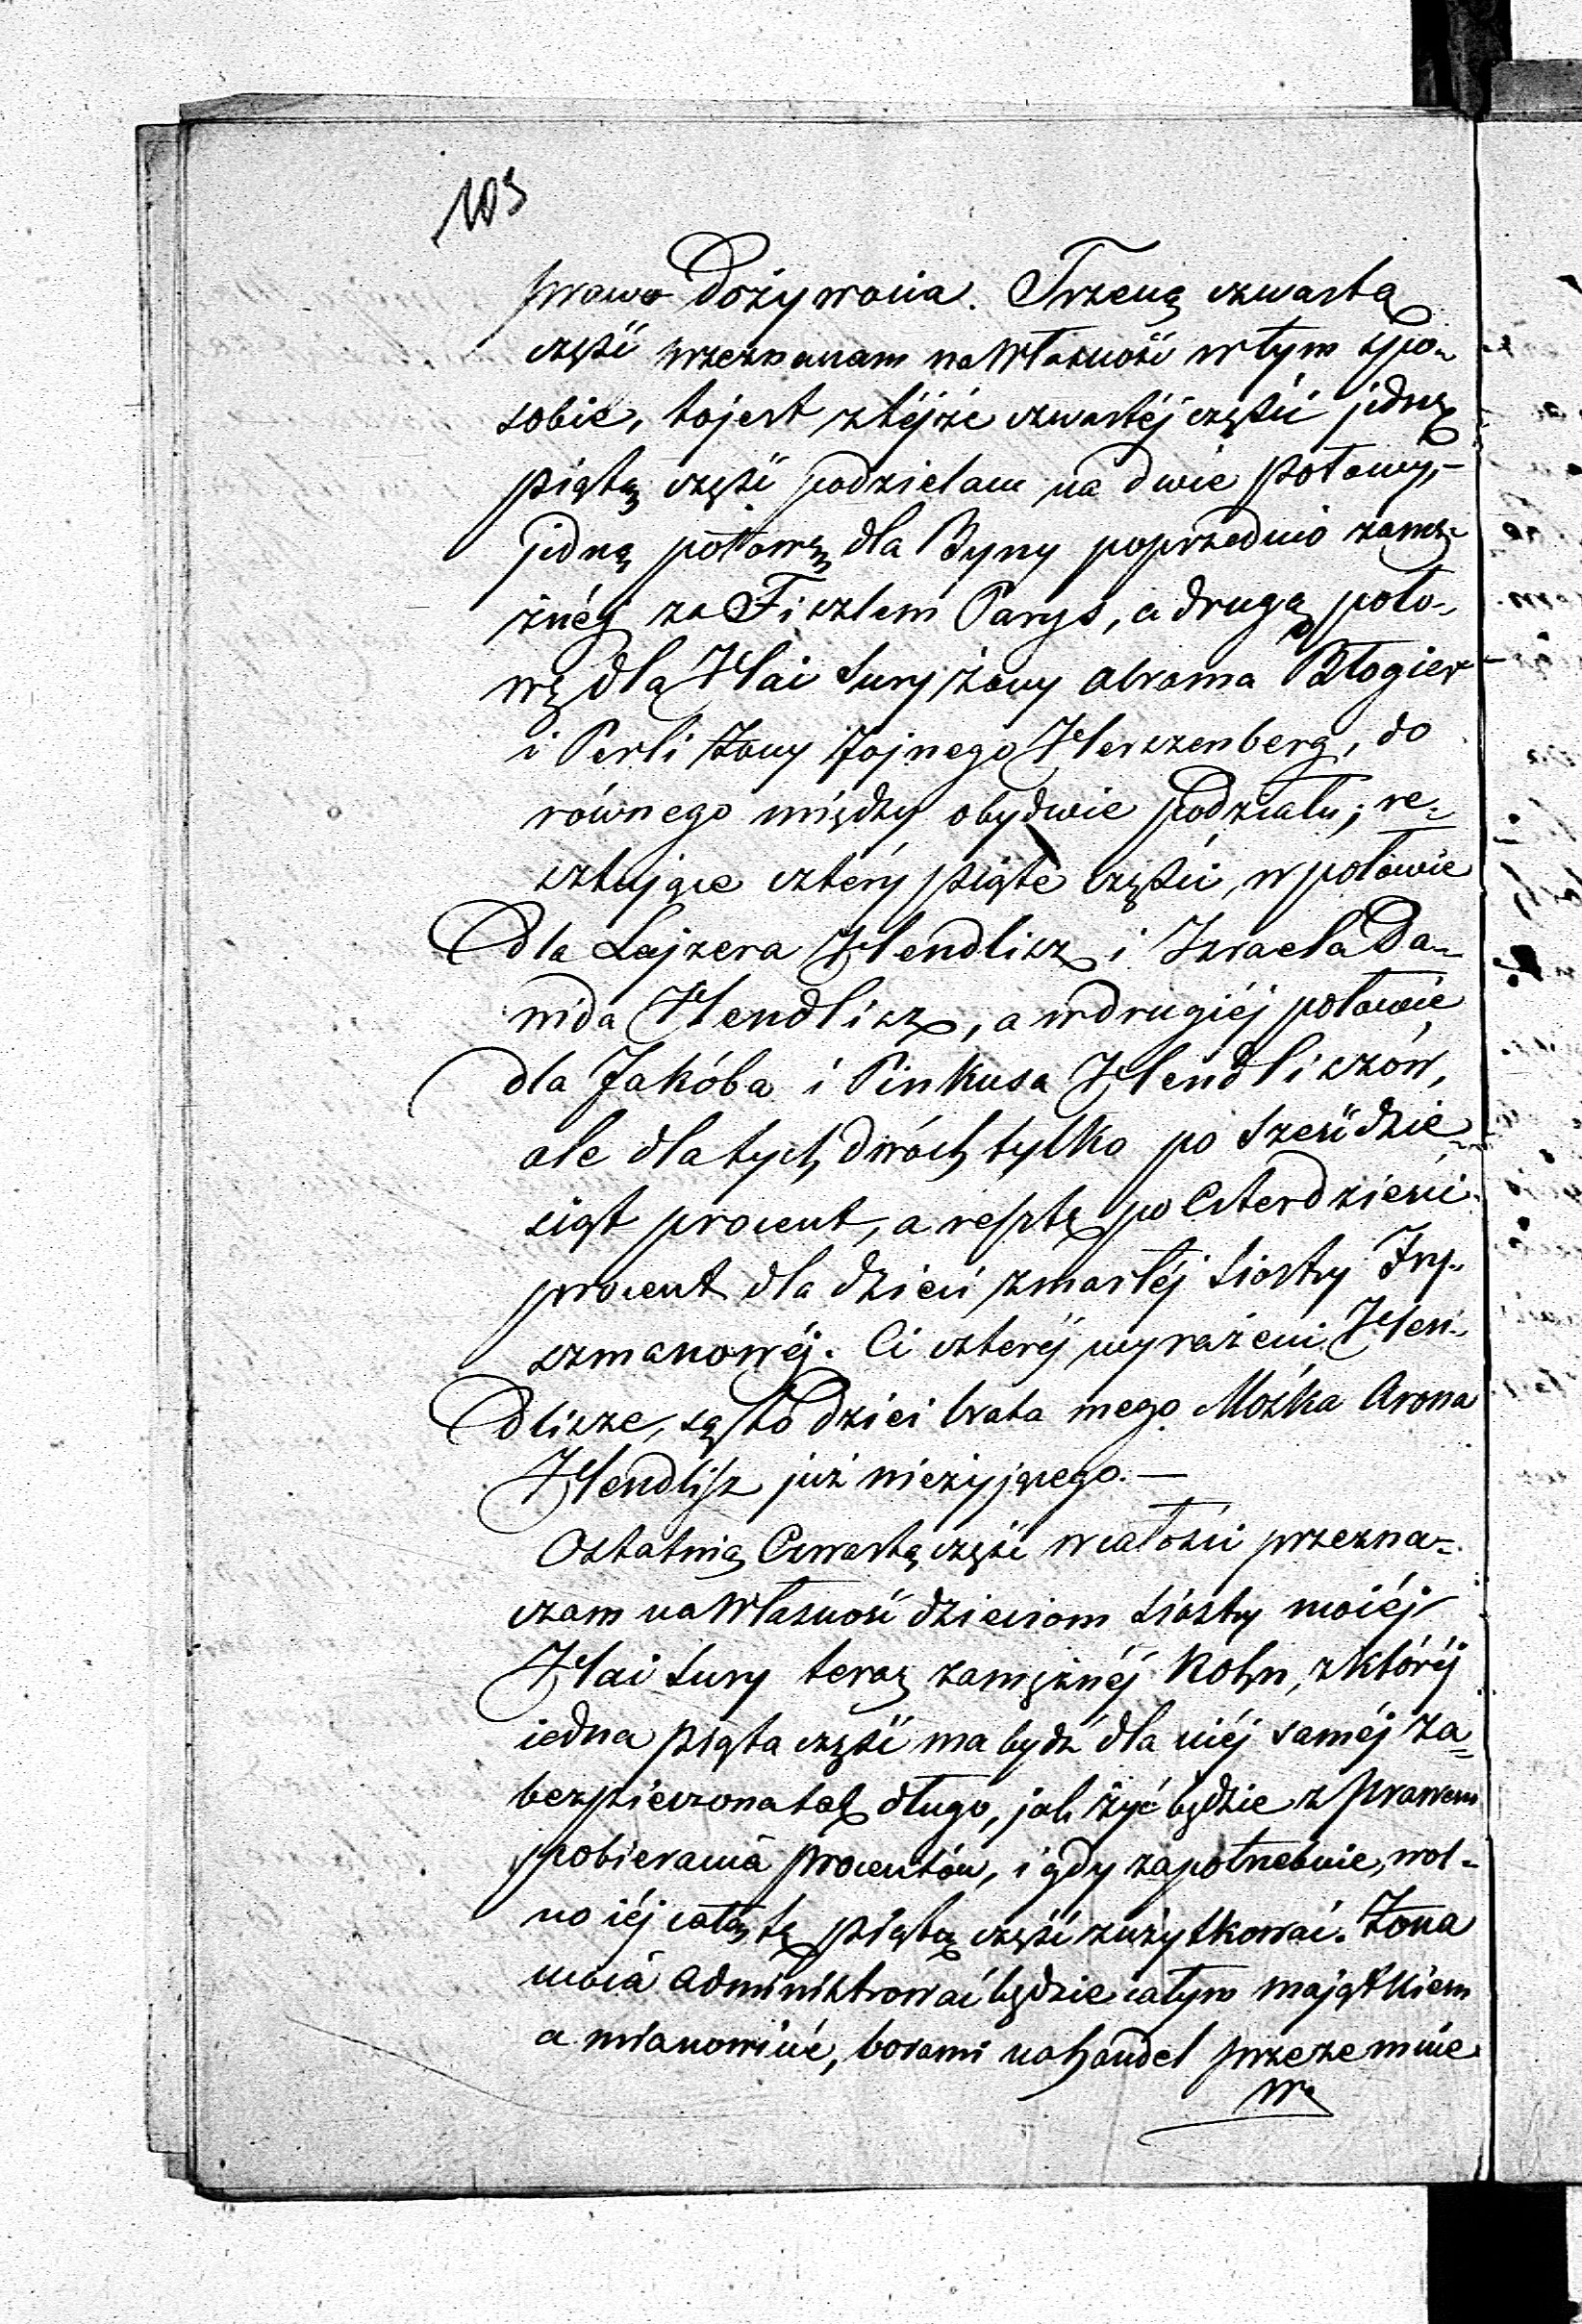 103
prawo Dożywocia. Trzecią czwartą
część przeznaczam na Własność w tym spo-
sobie, to jest z téjże czwartéj części jedną
piątą część podzielam na dwie połowy,-
jedną połowę dla Byny poprzednio zamę-
żnéj za Fiszlem Parys, a drugą poło-
wę dla Hai Sury żony Abrama Błogier
i Perli żony Jojnego Herszenberg, do
równego między obydwie podziału; re-
sztujące cztéry piąte części, w połowie
dla Lajzera Hendlisz i Izraela Da-
wida Hendlisz, a w drugiéj połowie
dla Jakóba i Pinkusa Hendliszów,
ale dla tych dwóch tylko po sześćdzie-
siąt procent, a resztę po Czterdzieści
procent dla dzieci zmarłéj Siostry Fry-
szmanowéj. Ci czteréj wyrażeni Hen-
dlisze, są to dzieci brata mego Mośka Arona
Hendlisz już nieżyjącego. —
Ostatnią Czwartą część w całości przezna-
czam na Własność dzieciom Siostry moiéj
Hai Sury teraz zamężnéj Kohn, z któréj
iedna piąta część ma bydź dla niéj saméj za-
bezpieczona tak długo, jak żyć będzie z prawem
pobierania procentów, i gdy zapotrzebuie, wol-
no iéj całą tę piątą część zużytkować. Żona
moia administrować będzie całym majątkiem
a mianowicie, borami na handel przezemnie